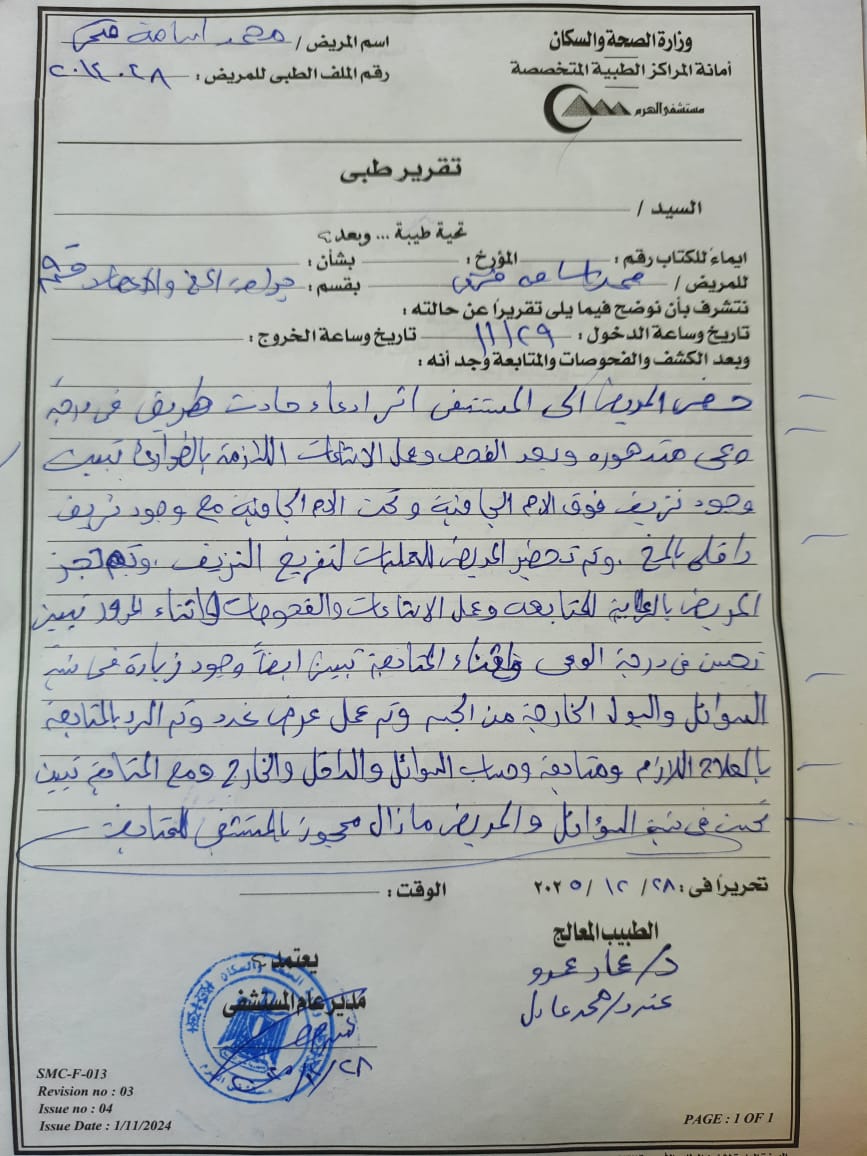 وزارة الصحة والسكان
أمانة المراكز الطبية المتخصصة
مستشفى الهرم
اسم المريض / محمد اسامة فتحى
رقم الملف الطبى للمريض :
تقرير طبى
السيد /
تحية طيبة ... وبعد ؟
ايماءً للكتاب رقم : المؤرخ : بشأن :
للمريض / محمد اسامه فتحى بقسم : جراحة المخ والاعصاب
نتشرف بأن نوضح فيما يلى تقريرًا عن حالته :
تاريخ وساعة الدخول : ١١/٢٩ تاريخ وساعة الخروج :
وبعد الكشف والفحوصات والمتابعة وجد أنه :
حضر المريض الى المستشفى اثر ادعاء حادث طريق فى درجة
وعى متدهوره وبعد الفحص وعمل الاشاعات اللازمة بالطوارئ تبين
وجود نزيف فوق الام الجافية وتحت الام الجافية مع وجود نزيف
داخلى بالمخ . وتم تحضير المريض للعمليات لتفريغ النزيف . وتم حجز
المريض بالعناية للمتابعه وعمل الاشاعات والفحوصات واثناء المرور تبين
تحسن فى درجة الوعى واثناء المتابعة تبين ايضاً وجود زيادة فى نسبة
السوائل والبول الخارجة من الجسم وتم عمل عرض غدد وتم الرد بالمتابعة
بالعلاج اللازم ومتابعة وحساب السوائل والداخل والخارج ومع المتابعة تبين
تحسن فى نسبة السوائل والمريض مازال محجوز بالمستشفى للمتابعة
تحريرًا فى : ٢٨ / ١٢ / ٢٠٢٥ الوقت :
الطبيب المعالج
د/ عمار عمرو
عنه د/ محمد عادل
يعتمد ؟
مدير عام المستشفى
SMC-F-013
Revision no : 03
Issue no : 04
Issue Date : 1/11/2024
PAGE : 1 OF 1